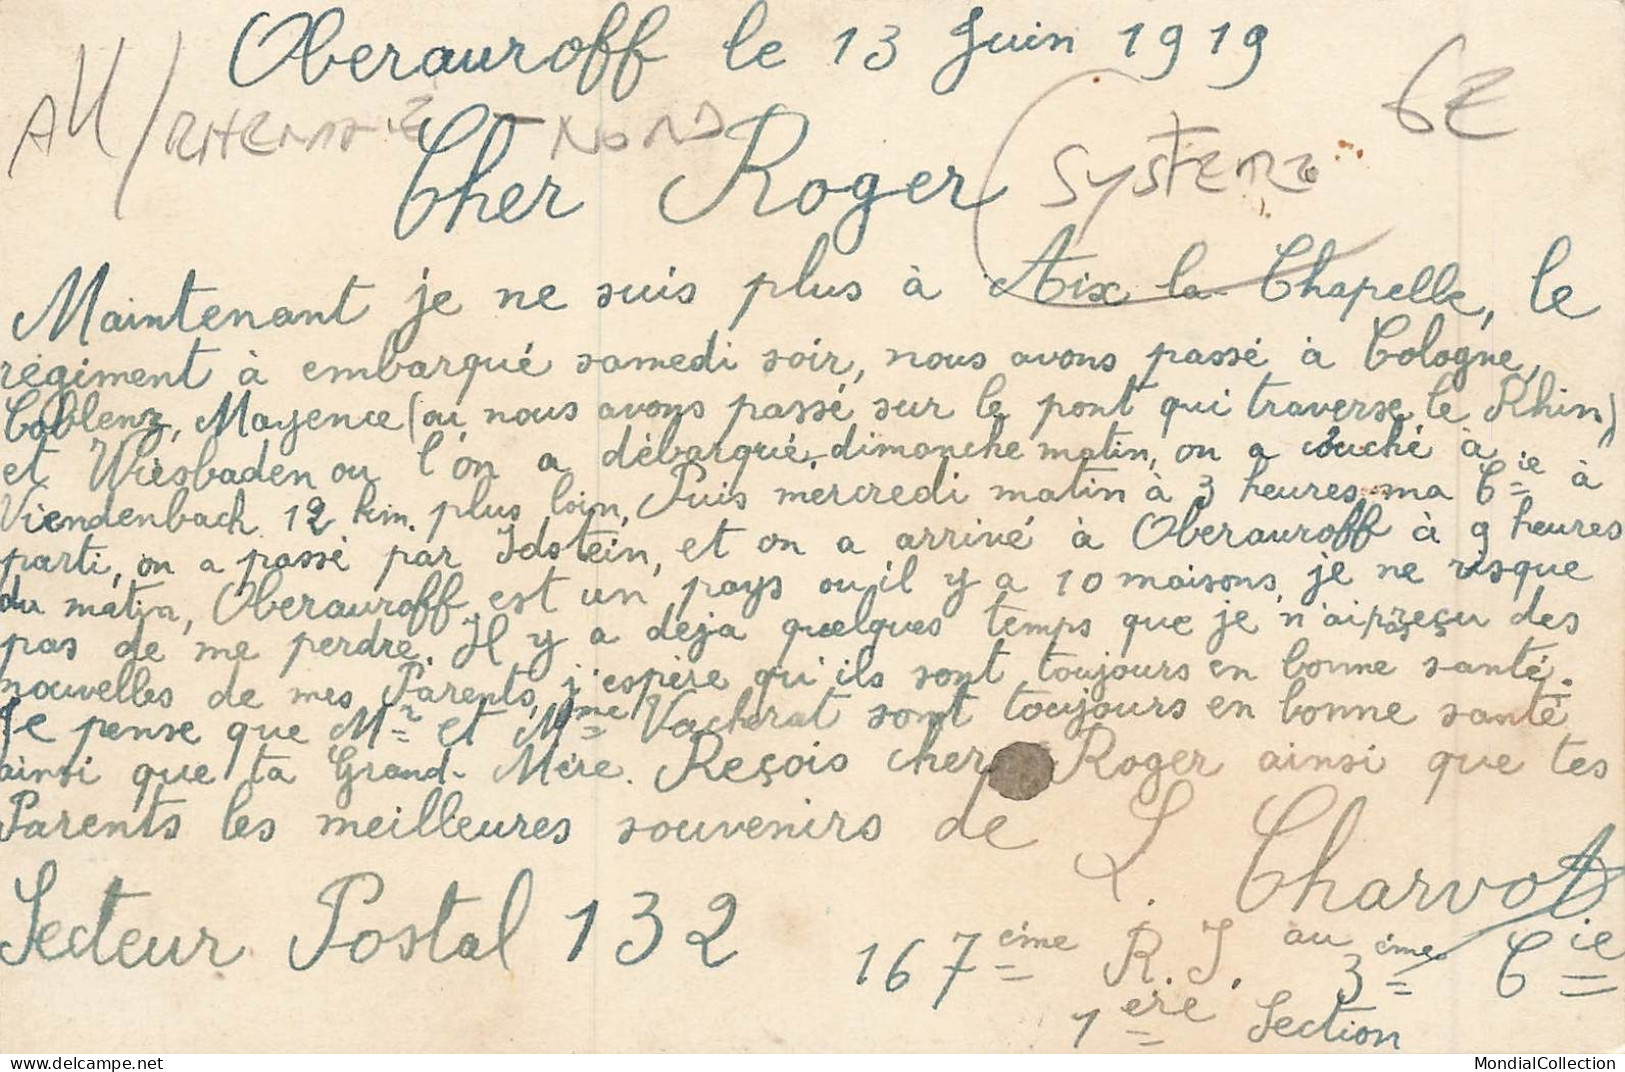 Oberauroff le 13 Juin 1919
All/RHENANIE-NORD
6E
Cher Roger
(SYSTEME
Maintenant je ne suis plus à Aix la Chapelle, le
régiment à embarqué samedi soir, nous avons passé à Cologne,
Coblenz, Mayence (ou nous avons passé sur le pont qui traverse le Rhin)
et Wiesbaden ou l'on a débarqué dimanche matin, on a couché à
Viendenbach 12 km. plus loin, Puis mercredi matin à 3 heures, ma Cie à
parti, on a passé par Idstein, et on a arrivé à Oberauroff à 9 heures
du matin, Oberauroff est un pays ou il y a 10 maisons, je ne risque
pas de me perdre. Il y a deja quelques temps que je n'ai pas reçu des
nouvelles de mes Parents, j'espère qu'ils sont toujours en bonne santé.
Je pense que Mr et Mme Vacherat sont toujours en bonne santé
ainsi que ta Grand-Mère. Reçois cher Roger ainsi que tes
Parents les meilleures souvenirs de
L Charvot
Secteur Postal 132
167ème R.I. au 3ème Cie
1ère Section
www.delcampe.net
MondialCollection